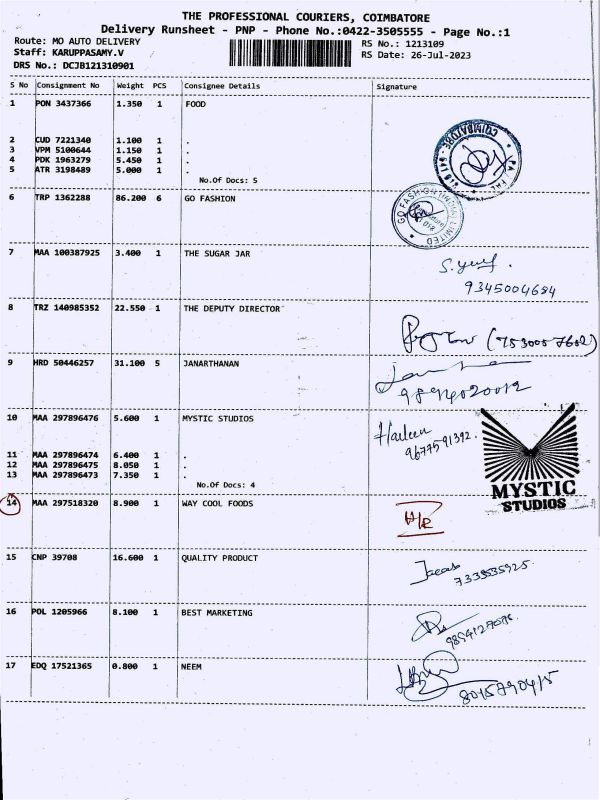 THE PROFESSIONAL COURIERS, COIMBATORE
Delivery Runsheet - PNP - Phone No.:0422-3505555 - Page No.:1
Route: MO AUTO DELIVERY
RS No.: 1213109
Staff: KARUPPASAMY.V
RS Date: 26-Jul-2023
DRS No.: DCJB121310901
S No Consignment No Weight PCS Consignee Details Signature
1 PON 3437366 1.350 1 FOOD
2 CUD 7221340 1.100 1 .
3 VPM 5100644 1.150 1 .
4 PDK 1963279 5.450 1 .
5 ATR 3198489 5.000 1 .
No.Of Docs: 5
COIMBATORE - 641
6 TRP 1362288 86.200 6 GO FASHION
GO FASHION (INDIA) LIMITED
7 MAA 100387925 3.400 1 THE SUGAR JAR
9345004684
8 TRZ 140985352 22.550 1 THE DEPUTY DIRECTOR
9 HRD 50446257 31.100 5 JANARTHANAN
10 MAA 297896476 5.600 1 MYSTIC STUDIOS
9677591392.
11 MAA 297896474 6.400 1 .
12 MAA 297896475 8.050 1 .
13 MAA 297896473 7.350 1 .
No.Of Docs: 4
MYSTIC
STUDIOS
14 MAA 297518320 8.900 1 WAY COOL FOODS
15 CNP 39708 16.600 1 QUALITY PRODUCT
16 POL 1205966 8.100 1 BEST MARKETING
17 EDQ 17521365 0.800 1 NEEM